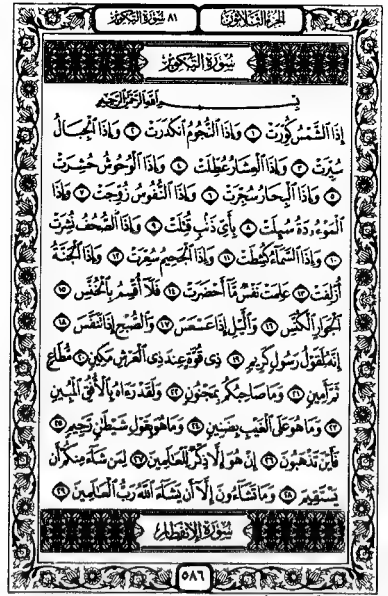 الجزء الثلاثون
٨١ سورة التكوير
سورة التكوير
بسم الله الرحمن الرحيم
إِذَا الشَّمْسُ كُوِّرَتْ ١ وَإِذَا النُّجُومُ انكَدَرَتْ ٢ وَإِذَا الْجِبَالُ
سُيِّرَتْ ٣ وَإِذَا الْعِشَارُ عُطِّلَتْ ٤ وَإِذَا الْوُحُوشُ حُشِرَتْ
٥ وَإِذَا الْبِحَارُ سُجِّرَتْ ٦ وَإِذَا النُّفُوسُ زُوِّجَتْ ٧ وَإِذَا
الْمَوْءُودَةُ سُئِلَتْ ٨ بِأَيِّ ذَنْبٍ قُتِلَتْ ٩ وَإِذَا الصُّحُفُ نُشِرَتْ
١٠ وَإِذَا السَّمَاءُ كُشِطَتْ ١١ وَإِذَا الْجَحِيمُ سُعِّرَتْ ١٢ وَإِذَا الْجَنَّةُ
أُزْلِفَتْ ١٣ عَلِمَتْ نَفْسٌ مَّا أَحْضَرَتْ ١٤ فَلَا أُقْسِمُ بِالْخُنَّسِ ١٥
الْجَوَارِ الْكُنَّسِ ١٦ وَالَّيْلِ إِذَا عَسْعَسَ ١٧ وَالصُّبْحِ إِذَا تَنَفَّسَ ١٨
إِنَّهُ لَقَوْلُ رَسُولٍ كَرِيمٍ ١٩ ذِي قُوَّةٍ عِندَ ذِي الْعَرْشِ مَكِينٍ ٢٠ مُّطَاعٍ
ثَمَّ أَمِينٍ ٢١ وَمَا صَاحِبُكُم بِمَجْنُونٍ ٢٢ وَلَقَدْ رَءَاهُ بِالْأُفُقِ الْمُبِينِ
٢٣ وَمَا هُوَ عَلَى الْغَيْبِ بِضَنِينٍ ٢٤ وَمَا هُوَ بِقَوْلِ شَيْطَٰنٍ رَّجِيمٍ ٢٥
فَأَيْنَ تَذْهَبُونَ ٢٦ إِنْ هُوَ إِلَّا ذِكْرٌ لِّلْعَالَمِينَ ٢٧ لِمَن شَاءَ مِنكُمْ أَن
يَسْتَقِيمَ ٢٨ وَمَا تَشَاءُونَ إِلَّا أَن يَشَاءَ اللَّهُ رَبُّ الْعَالَمِينَ ٢٩
سورة الانفطار
٥٨٦